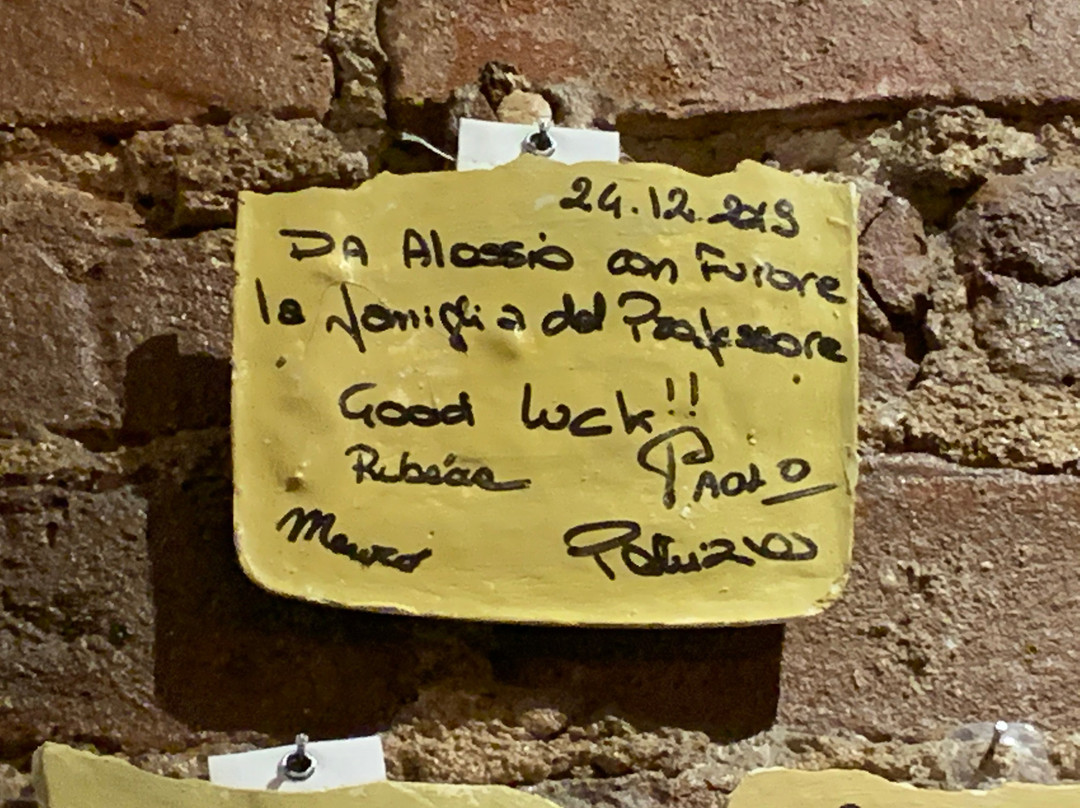 24.12.2019
DA Alessio con Furore
la famiglia del Professore
Good luck!!
Paolo